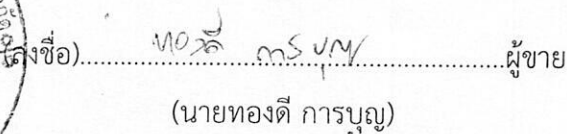 (ลงชื่อ)....ทองดี การบุญ....ผู้ขาย
(นายทองดี การบุญ)